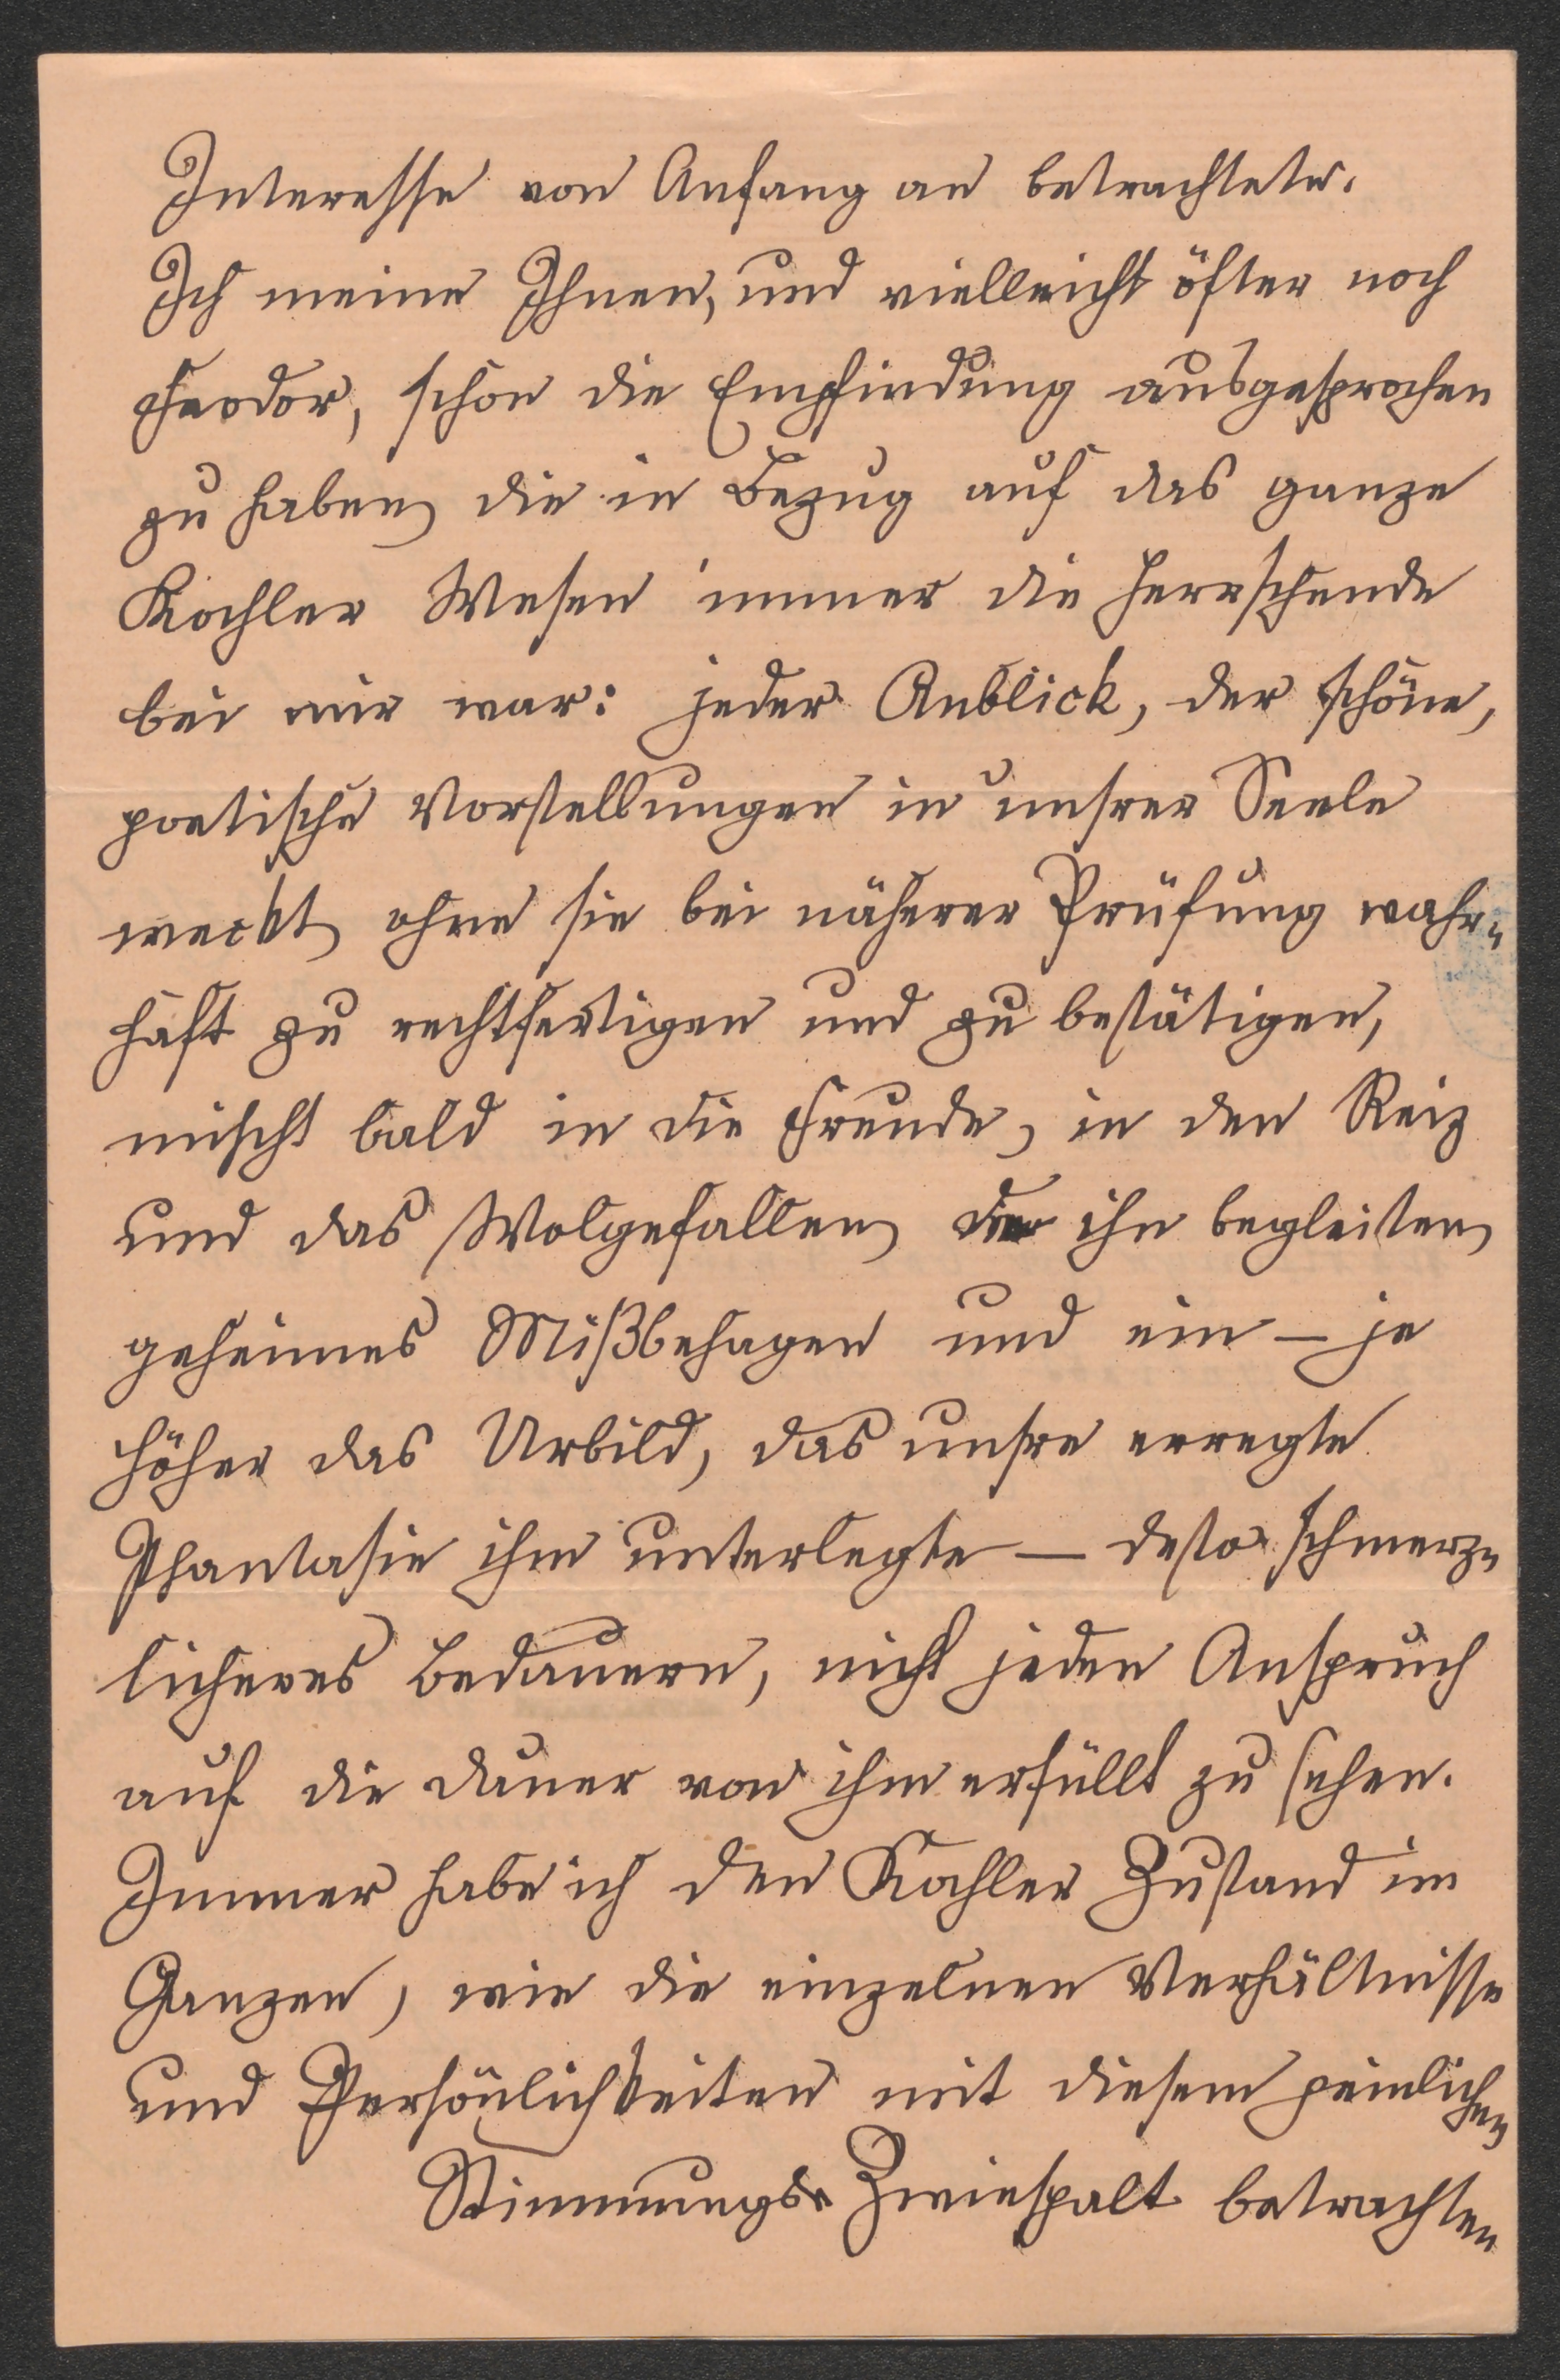 Interesse von Anfang an betrachtete.
Ich meine Ihnen, und vielleicht öfter noch
Feodor, schon die Empfindung ausgesprochen
zu haben, die in Bezug auf das ganze
Kochler Wesen immer die herrschende
bei mir war: jeder Anblick, der schöne,
poetische Vorstellungen in unsrer Seele
weckt, ohne sie bei näherer Prüfung wahr-
haft zu rechtfertigen und zu bestätigen,
mischt bald in die Freude, in den Reiz
und das Wolgefallen, die ihn begleiten,
geheimes Mißbehagen und ein – je
höher das Urbild, das unsre erregte
Phantasie ihm unterlegte – desto schmerz-
licheres Bedauern, nicht jeden Anspruch
auf die Dauer von ihm erfüllt zu sehen.
Immer habe ich den Kochler Zustand im
Ganzen, wie die einzelnen Verhältnisse
und Persönlichkeiten mit diesem peinlichen
Stimmungs-Zwiespalt betrachten